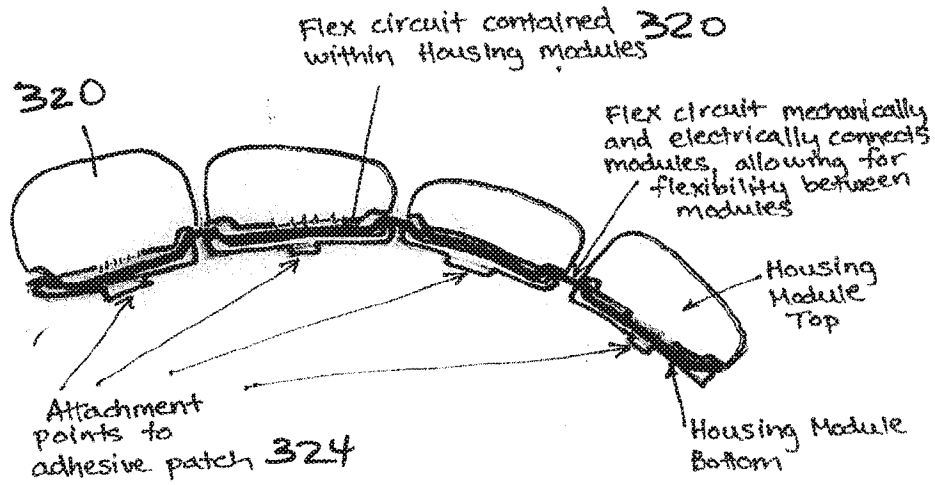 Flex circuit contained 320
within Housing modules
320
Flex circuit mechanically
and electrically connects
modules, allowing for
flexibility between
modules
Housing
Module
Top
Attachment
points to
adhesive patch 324
Housing Module
Bottom